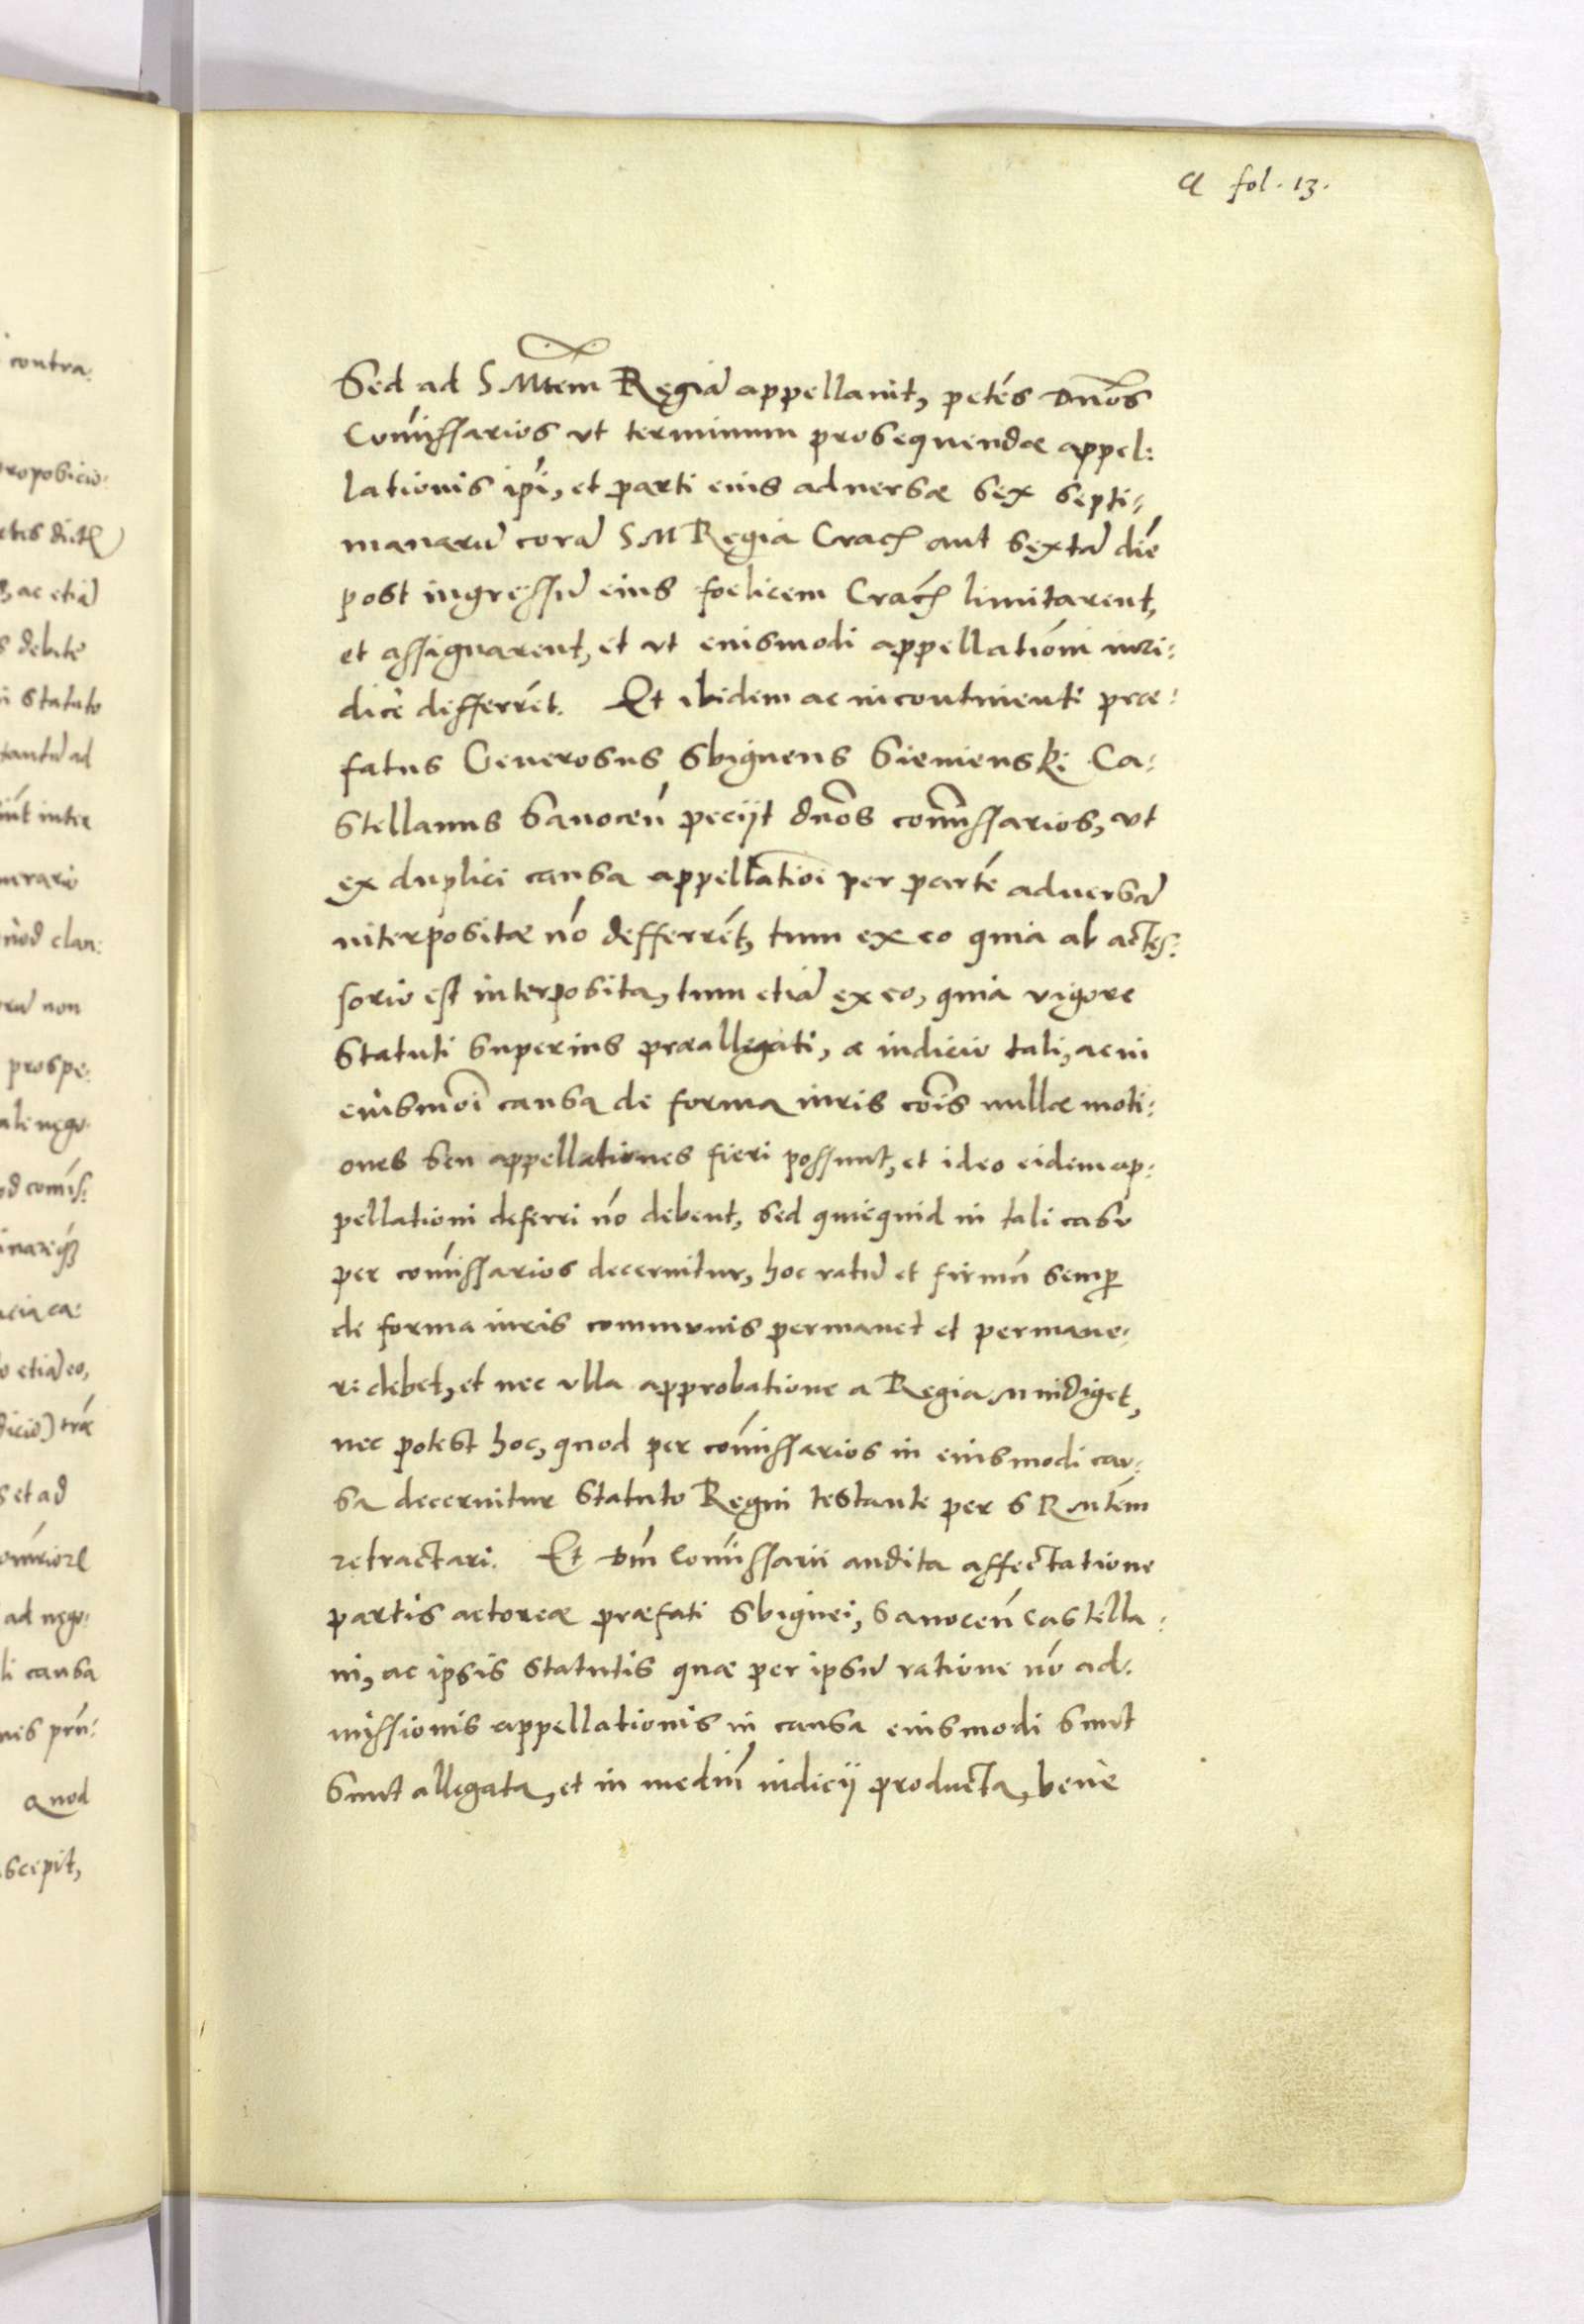 a fol. 13.
Sed ad S Mtem Regiã appellauit, petẽs Dños
Com̃issarios vt terminum prosequendæ appel:
lationis ip̃i, et parti eius aduersæ sex septi:
manarũ corã S M Regia Crac̃ aut sextã diẽ
post ingressũ eius foelicem Crac̃ limitarent,
et assignarent, et vt eiusmodi appellationi iuri:
dicè defferrẽt. Et ibidem ac incontinenti præ:
fatus Generosus Sbigneus Sienienski Ca:
stellanus Sanoceñ peciit dños com̃issarios, vt
ex duplici causa appellatioĩ per partẽ aduersã
interpositæ nõ defferrẽt, tum ex eo quia ab actes:
sorio est interposita, tum etiã ex eo, quia vigore
statuti superius præallegati, a iudicio tali, ac in
eiusmõi causa de forma iuris cõis nullæ moti:
ones seu appellationes fieri possunt, et ideo eidem ap:
pellationi deferri nõ debent, sed quicquid in tali casu
per com̃issarios decernitur, hoc ratũ et firmũ semp̱
de forma iuris communis permanet et permane:
ri debet, et nec vlla approbatione a Regia M indiget,
nec potest hoc, quod per com̃issarios in eiusmodi cau:
sa decernitur statuto Regni testante per S R Mtem
retractari. Et Dñi Com̃issarii audita affectatione
partis actoreæ præfati Sbignei, Sanoceñ Castella:
ni, ac ipsis statutis quæ per ipsũ ratione nõ ad:
missionis appellationis in causa eiusmodi sunt
sunt allegata, et in mediũ iudicij producta, benè
contra:
proposicio:
ac etiã
debite
statuto
tantũ ad
inter
clau:
non
prospe:
nego:
comis:
etiã eo,
et ad
ad nego:
causa
Quod
scepit,